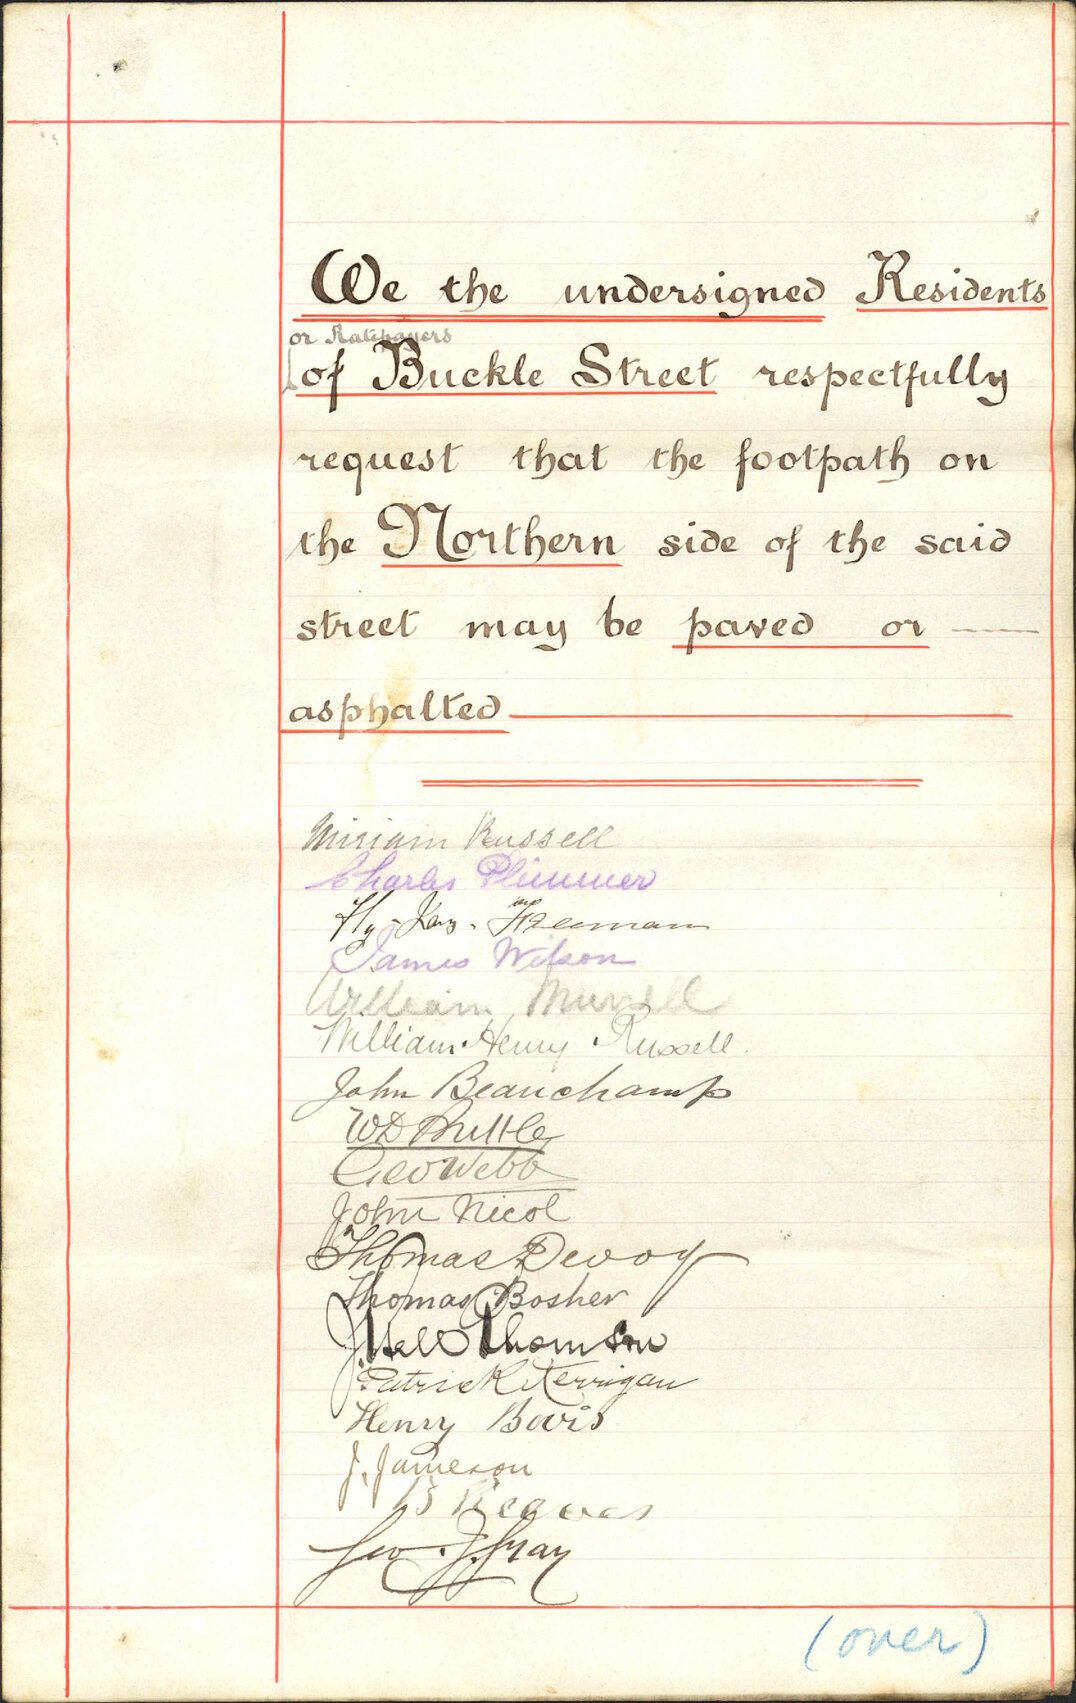 We the undersigned Residents
or Ratepayers
of Buckle Street respectfully
request that the footpath on
the Northern side of the said
street may be paved or
asphalted
Miriam Russell
Charles Plimmer
Hy. Jas. Freeman
James Wilson
William Murrell
William Henry Russell.
John Beauchamp
WD
Geo Webb
John Nicol
Thomas Devoy
Thomas Bosher
J. Hall Thomson
Patrick Kerrigan
Henry Bovis
J. Jameson
B Reaves
Geo. J. Gray
(over)